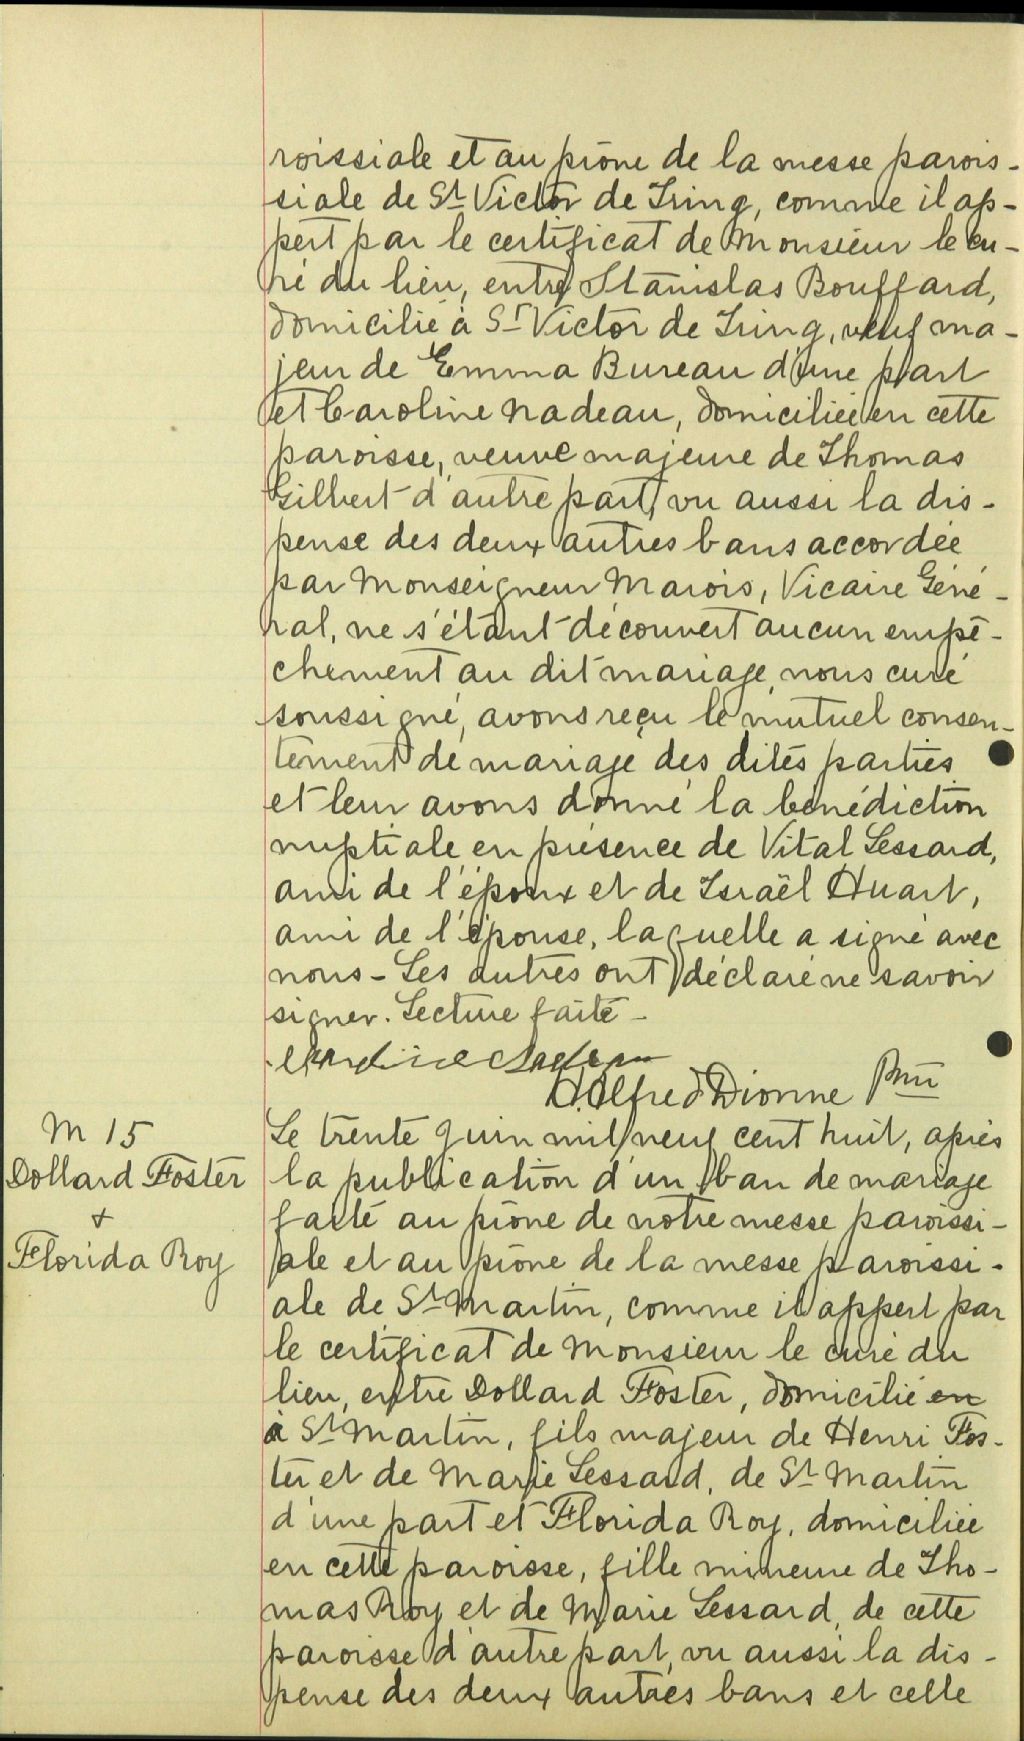 roissiale et au prône de la messe parois-
siale de St Victor de Tring, comme il ap-
pert par le certificat de Monsieur le cu-
ré du lieu, entre Stanislas Bouffard,
domicilié à St Victor de Tring, veuf ma-
jeur de Emma Bureau d'une part
et Caroline Nadeau, domiciliée en cette
paroisse, veuve majeure de Thomas
Gilbert d'autre part, vu aussi la dis-
pense des deux autres bans accordée
par Monseigneur Marois, Vicaire Géné-
ral, ne s'étant découvert aucun empê-
chement au dit mariage, nous curé
soussigné, avons reçu le mutuel consen-
tement de mariage des dites parties
et leur avons donné la bénédiction
nuptiale en présence de Vital Lessard,
ami de l'époux et de Israël Huart,
ami de l'épouse, laquelle a signé avec
nous - Les autres ont déclaré ne savoir
signer. Lecture faite -
H. Alfred Dionne Ptre
M 15
Dollard Foster
+
Florida Roy
Le trente Juin mil neuf cent huit, après
la publication d'un ban de mariage
faite au prône de notre messe paroissi-
ale et au prône de la messe paroissi-
ale de St Martin, comme il appert par
le certificat de Monsieur le curé du
lieu, entre Dollard Foster, domicilié en
à St Martin, fils majeur de Henri Fos-
ter et de Marie Lessard, de St Martin
d'une part et Florida Roy, domiciliée
en cette paroisse, fille mineure de Tho-
mas Roy et de Marie Lessard, de cette
paroisse d'autre part, vu aussi la dis-
pense des deux autres bans et celle